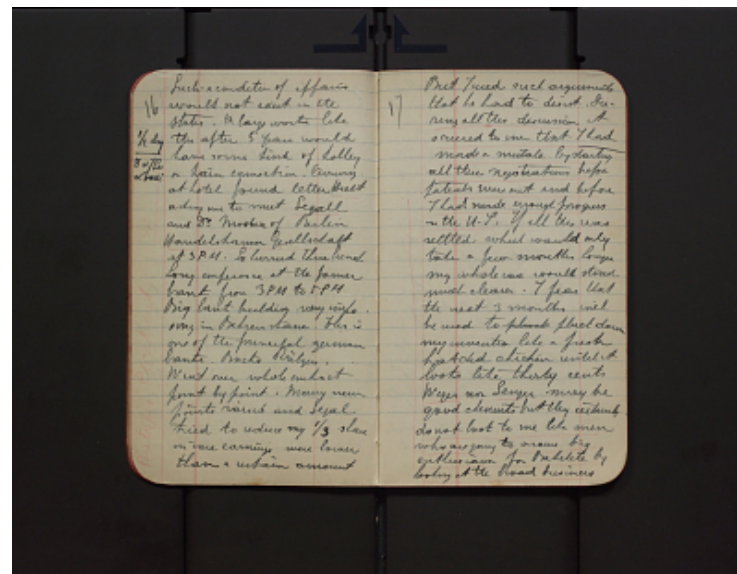 16
Such a condition of affairs
would not exist in the
States. A large works like
this after 5 years would
have some kind of trolley
or train connection.
at hotel found letter
asking me to meet Segall
and Dr of Berlin
Handelshaven Gesellschaft
at 3 P.M. So hurried there had
long conference at the former
bank from 3 PM to 5 PM
Big bank building very impo-
sing in Behrenstrasse. This is
one of the principal german
banks.
Went over whole contract
point by point. Many new
points raised and Segal
tried to reduce my 1/3 share
in case earnings were lower
than a certain amount
17
But I used such arguments
that he had to desist. Du-
ring all this discussion it
occurred to me that I had
made a mistake by starting
all these negotiations before
patents were out and before
I had made enough progress
in the U.S. If all this was
settled which would only
take a few months longer
my whole case would stand
much clearer. I fear that
the next 3 months will
be used to pluck down
my invention like a fresh
hatched chicken until it
looks like thirty cents
nor may be
good chemists but they certainly
do not look to me like men
who are going to arouse big
enthusiasm for Bakelite by
looking at the broad business